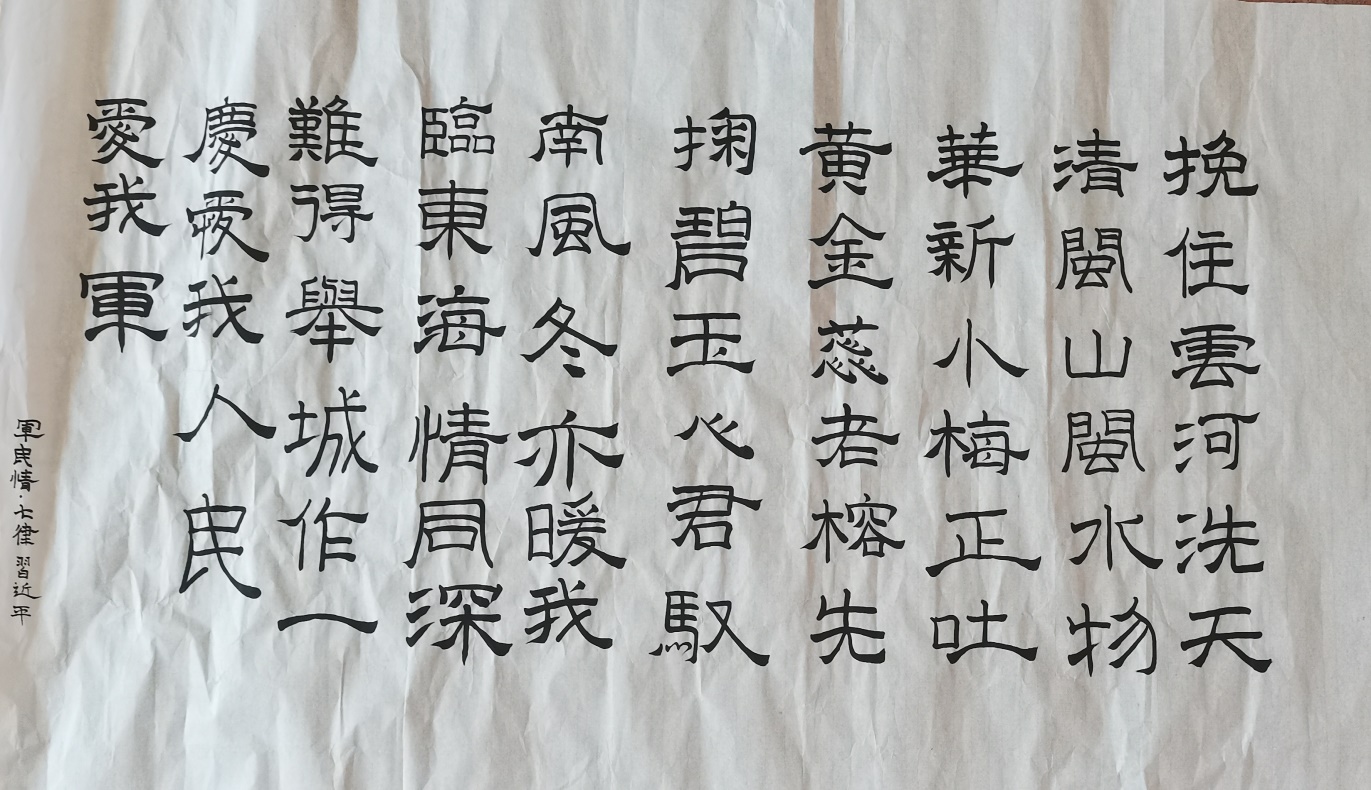 挽住雲河洗天
清閩山閩水物
華新小梅正吐
黄金蕊老榕先
掬碧玉心君馭
南風冬亦暖我
臨東海情同深
難得舉城作一
慶愛我人民
愛我軍
軍民情·七律 習近平